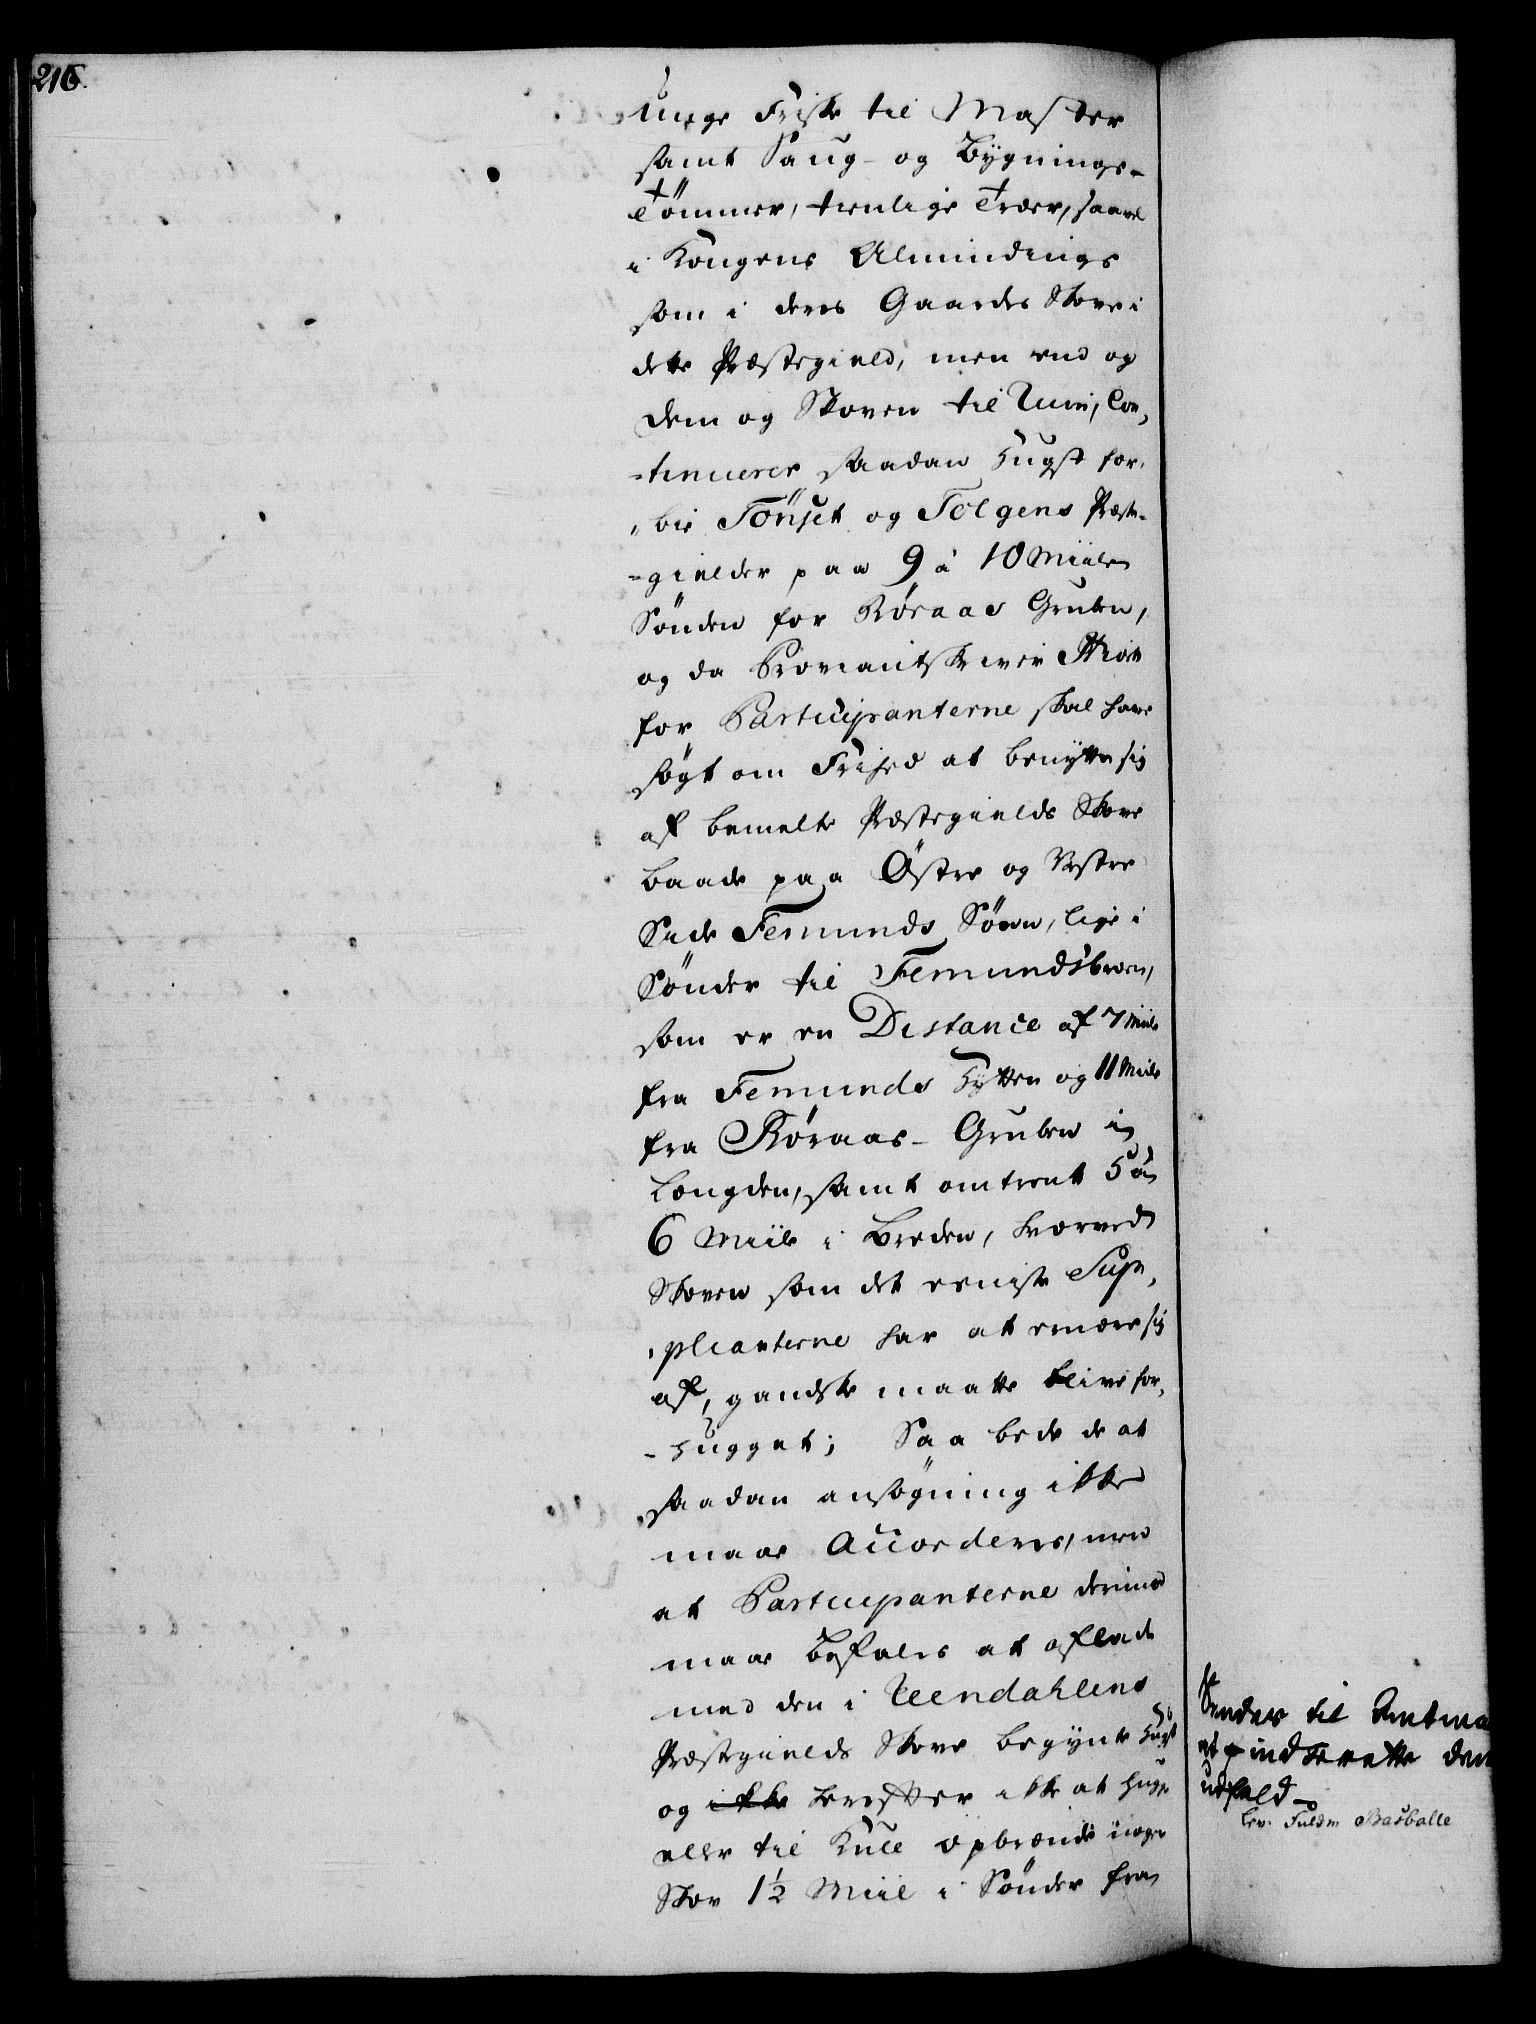 216.
unge Friske til Master
samt Saug- og Bygnings-
Tømmer, tienlige Træer, saavel
i Kongens Almindings
som i deres Gaardes Skove i
dette Præstegield, men end og
dem og Skoven til Ruin, Con-
-tinuerer saadan Hugst for-
-bie Tønset og Tolgens Præste-
-gielder paa 9 à 10 Miile
Sønden for Røraas Gruben,
og da Proviantskriver
for Participanterne skal have
søgt om Frihed at benytte sig
af bemelte Præstegields Skove
baade paa Østre og Vestre
Side Femunds Søen, lige i
Sønder til Femundsbroen,
som er en Distance af 7 Miile
fra Femunds Hytten og 11 Miile
fra Røraas-Gruben i
Længden, samt omtrent 5 à
6 Miile i Breden, hvorved
Skoven som det eeniste Sup-
-plicanterne har at ernære sig
af, gandske maatte blive for-
-hugget; Saa bede de at
saadan ansøgning ikke
maae Accorderes, men
at Participanterne derimod
maae befales at aflade
med den i Reendahlens
Præstegields Skove begynte Hugst
og ikke herefter ikke at hugge
eller til Kull opbrænde nogen
Skov 1½ Miil i Sønder fra
Sendes til Amtma
at indhente den
udfald
Lev. Fuldm. Basballe